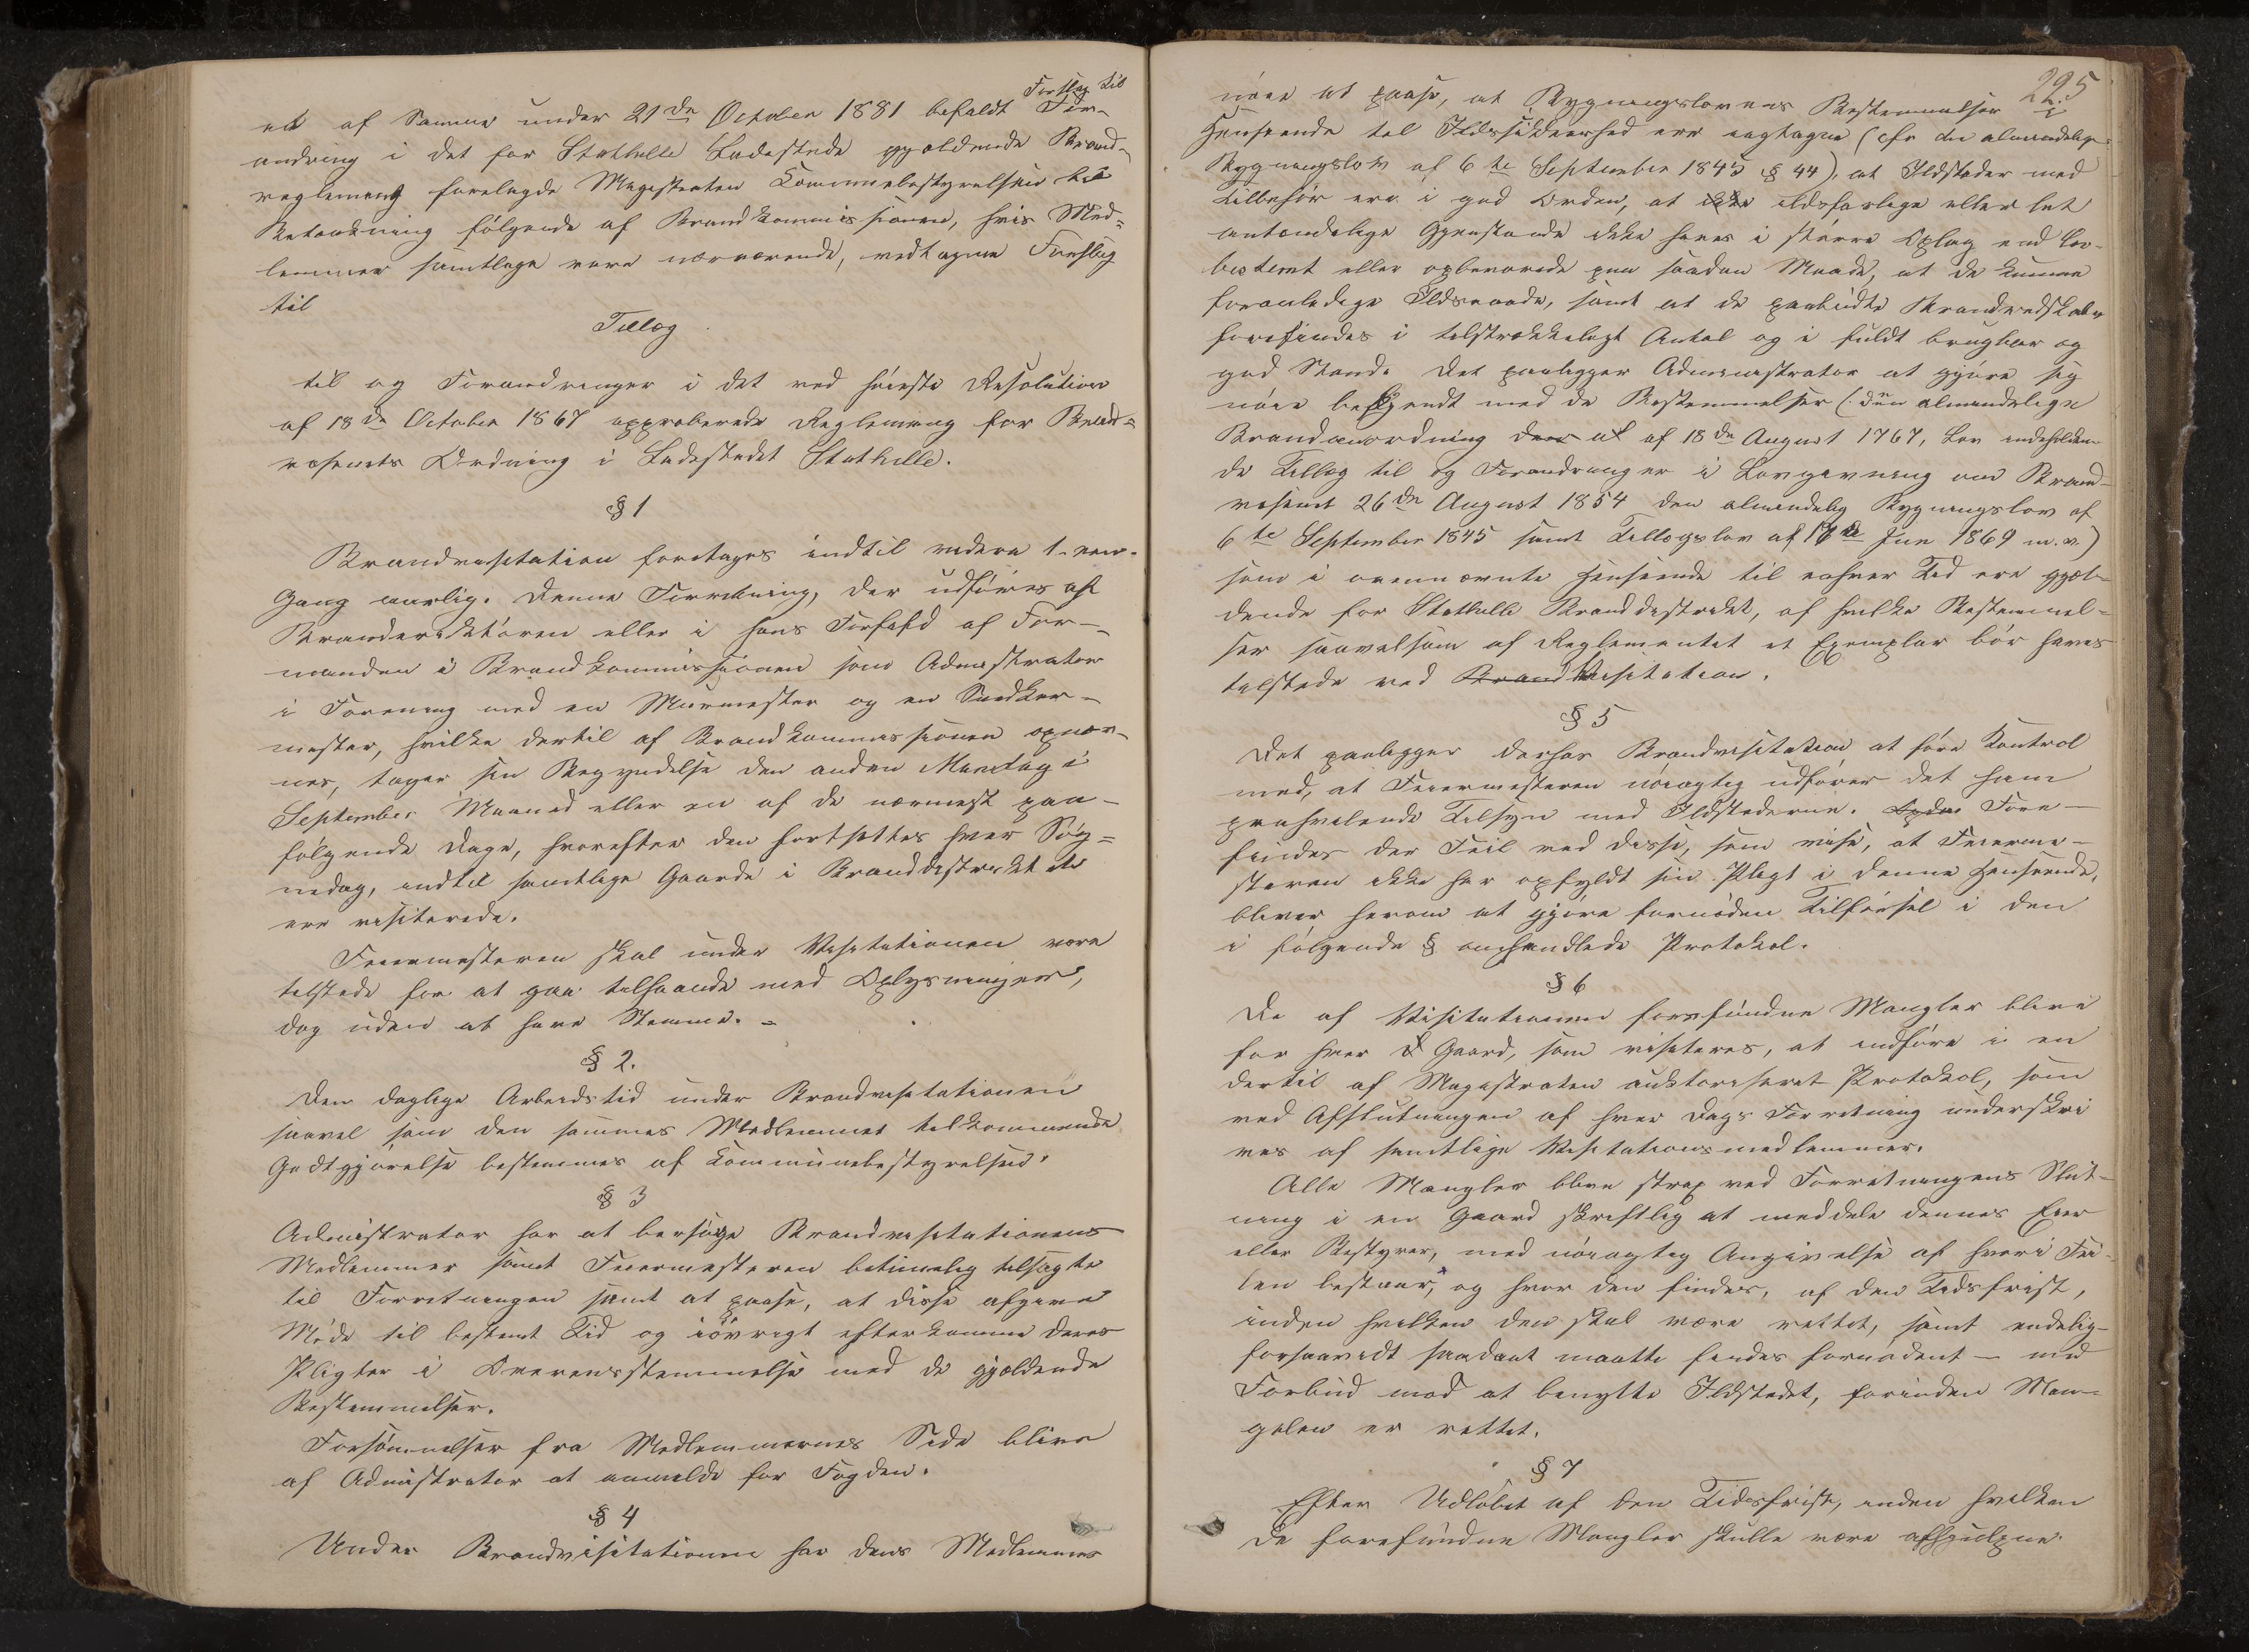 Forslag til
ett af Samme under 21de October 1881 befaldt For-
andring i det for Stathelle Ladested gjældende Brand-
reglement forelagde Magistraten Kommunebestyrelsen til
Betænkning følgende af Brandkommissionen, hvis Med-
lemmer samtlige vare nærværende, vedtagne Forslag
til
Tillæg
til og Forandringer i det ved høieste Resolution
af 18de October 1867 approberede Reglement for Brand-
væsenets Ordning i Ladestedet Stathelle.
§ 1
Brandvisitation foretages indtil videre 1 - een -
Gang aarlig. Denne Forretning, der udføres af
Branddirektøren eller i hans Forfald af For-
manden i Brandkommissionen som Admistrator
i Forening med en Murmester og en Snedker-
mester, hvilke dertil af Brandkommissionen opnæv-
nes, tager sin Begyndelse den anden Mandag i
September Maaned eller en af de nærmest paa-
følgende Dage, hvorefter den fortsættes hver Søg-
nedag, indtil samtlige Gaarde i Branddistriktet
ere visiterede.
Feiermesteren skal under Visitationen være
tilstede for at gaa tilhaande med Oplysninger,
dog uden at have Stemme. -
§ 2.
Den daglige Arbeidstid under Brandvisitationen
saavel som den sammes Medlemmer tilkommende
Godtgjørelse bestemmes af Kommunebestyrelsen.
§ 3
Admistrator har at besørge Brandvisitationens
Medlemmer samt Feiermesteren betimelig tilsagte
til Forretningen samt at paase, at disse afgive
Møde til bestemt Tid og iøvrigt efterkomme deres
Pligter i Overensstemmelse med de gjældende
Bestemmelser.
Forsømmelser fra Medlemmernes Side blive
af Admistrator at anmelde for Fogden.
§ 4
Under Brandvisitationen har dens Medlemmer
295
nøie at paase, at Bygningslovens Bestemmelser i
Henseende til Ildssikkerhed ere iagtagne (cfr den almindelige
Bygningslov af 6te September 1845 § 44), at Ildsteder med
Tilbehør ere i god Orden, at ikke ildsfarlige eller let
antændelige Gjenstande ikke haves i større Oplag end lov-
bestemt eller opbevarede paa saadan Maade, at de kunne
foranledige Ildsvaade, samt at de paabudte Brandredskaber
forefindes i tilstrækkeligt Antal og i fuldt brugbar og
god Stand. Det paaligger Administrator at gjøre sig
nøie bekjendt med de Bestemmelser (: den almindelige
Brandanordning af 18de August 1767, Lov indeholden-
de Tillæg til og Forandringer i Lovgivning om Brand-
væsenet 26de August 1854 den almindelig Bygningslov af
6te September 1845 samt Tillægslov af 17de Juni 1869 m.v.)
som i ovennævnte Henseende til enhver Tid ere gjæl-
dende for Stathelle Branddistrikt, af hvilke Bestemmel-
ser saavelsom af Reglementet et Exemplar bør haves
tilstede ved Brand Visitation.
§ 5
Det paaligger derhos Brandvisitation at føre Kontrol
med, at Feiermesteren nøiagtig udfører det ham
paahvilende Tilsyn med Ildstederne. Fore-
findes der Feil ved disse, som vise, at Feierme-
steren ikke har opfyldt sin Pligt i denne Henseende,
bliver herom at gjøre fornøden Tilførsel i den
i følgende § omhandlede Protokol.
§ 6
De af Visitationen forefundne Mangler blive
for hver Gaard, som visiteres, at indføre i en
dertil af Magistraten auktoriseret Protokol, som
ved Afslutningen af hver Dags Forretning underskri
ves af samtlige Visitationsmedlemmer.
Alle Mangler blive strax ved Forretningens Slut-
ning i en Gaard skriftlig at meddele dennes Eier
eller Bestyrer, med nøiagtig Angivelse af hvori Fei-
len bestaar, og hvor den findes, af den Tidsfrist,
inden hvilken den skal være rettet, samt endelig -
forsaavidt saadant maatte findes fornødent - med
Forbud mod at benytte Ildstedet, forinden Man-
gelen er rettet.
§ 7
Efter Udløbet af den Tidsfrist, inden hvilken
de forefundne Mangler skulle være afhjulpne